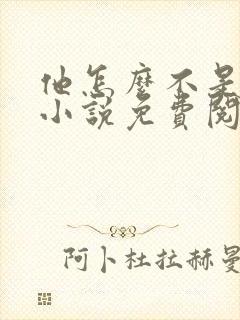 他怎麼不是
小說免費閱
阿卜杜拉赫曼